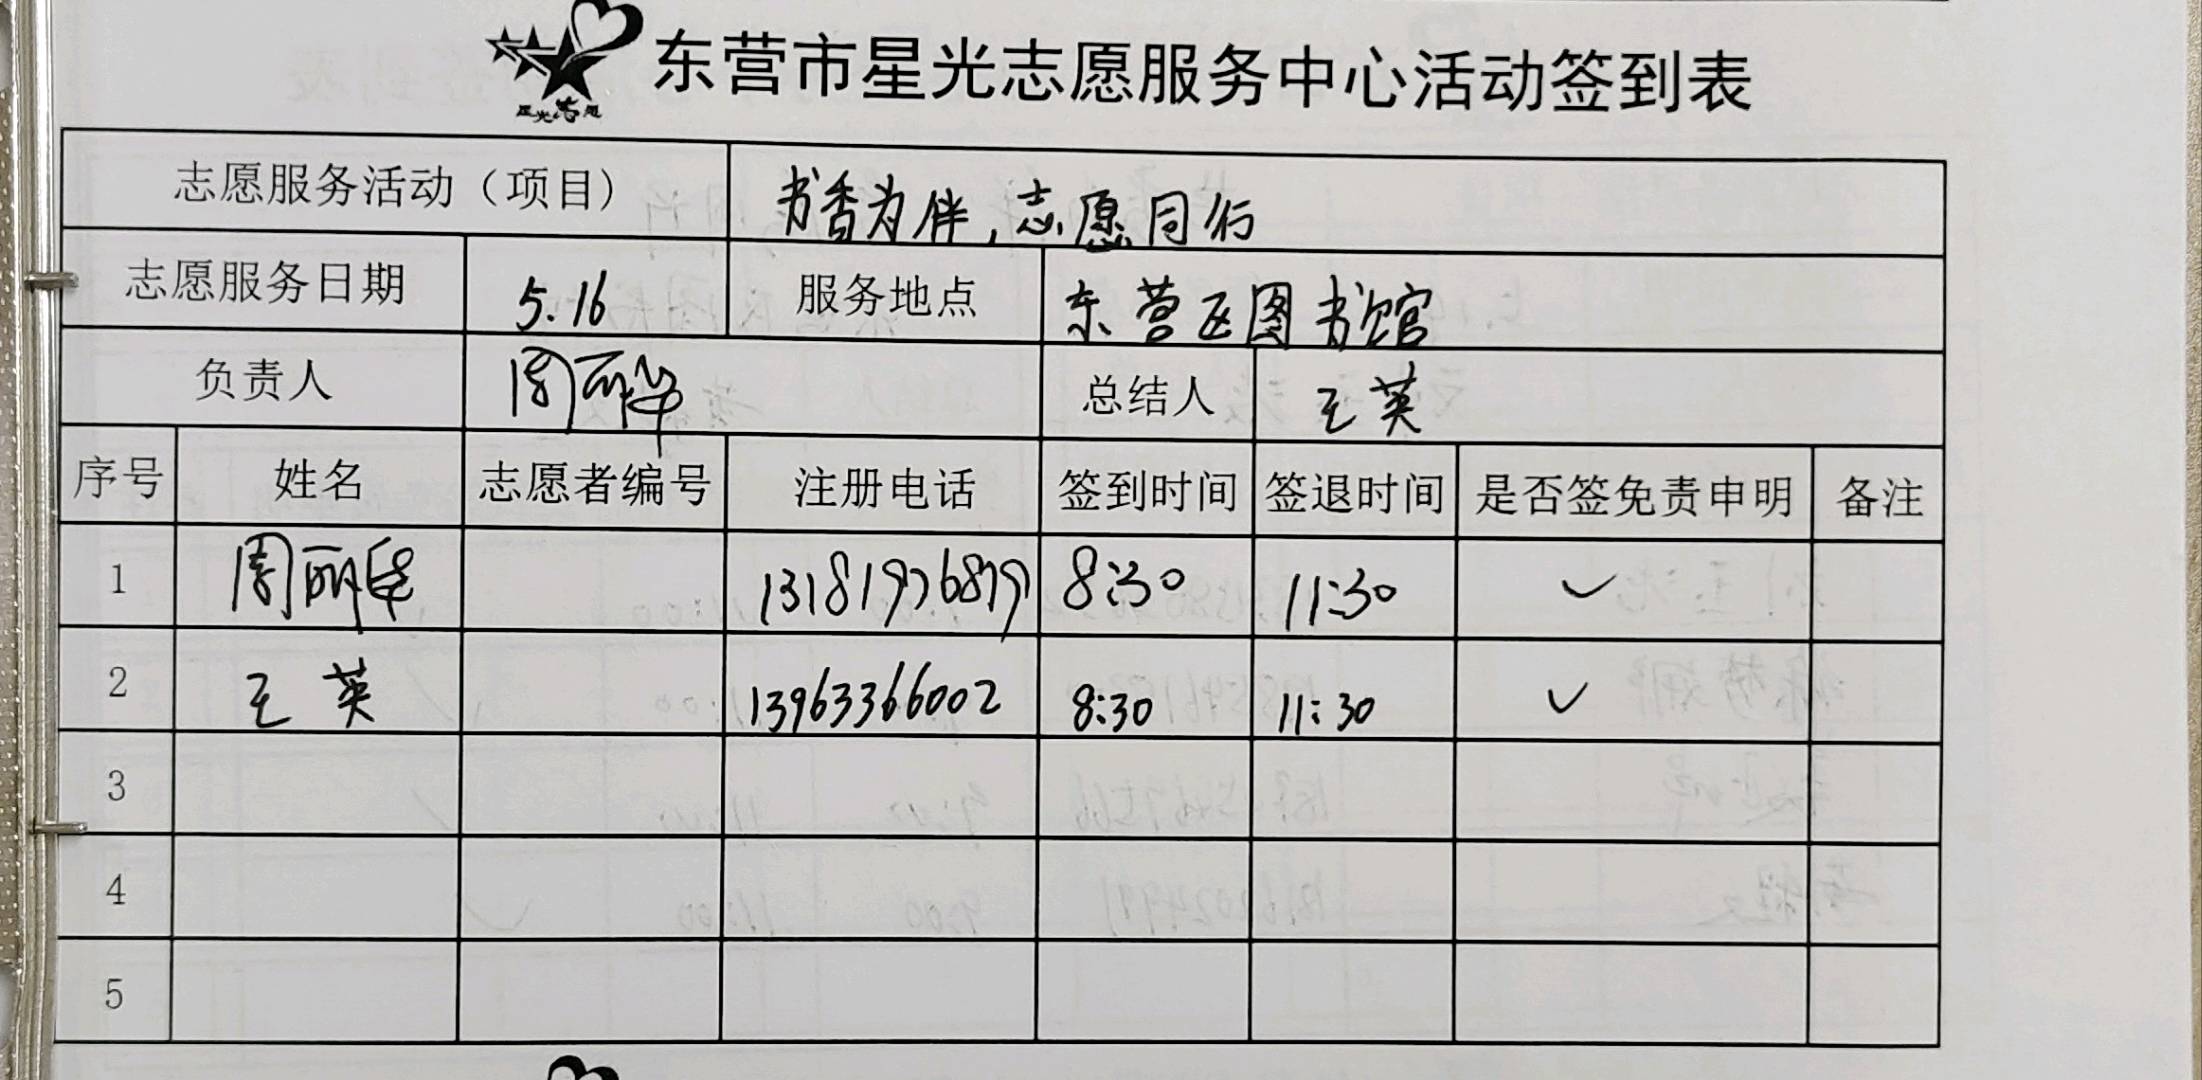 星光志愿
东营市星光志愿服务中心活动签到表
志愿服务活动（项目） 书香为伴，志愿同行
志愿服务日期 5.16 服务地点 东营区图书馆
负责人 周丽华 总结人 王英
序号 姓名 志愿者编号 注册电话 签到时间 签退时间 是否签免责申明 备注
1 周丽华 13181976879 8:30 11:30 ✓
2 王英 13963366002 8:30 11:30 ✓
3
4
5